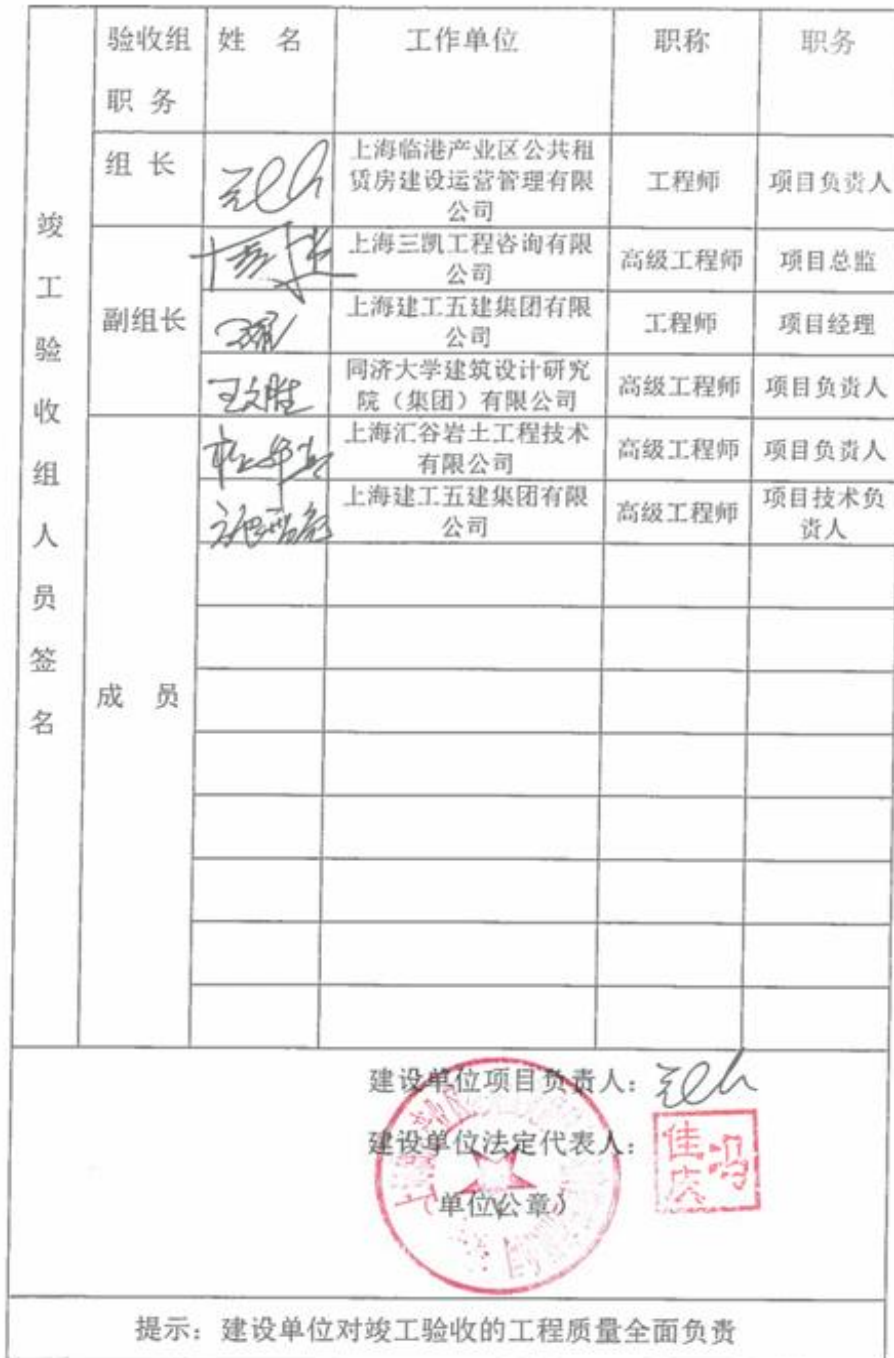 竣工验收组人员签名
验收组 姓 名 工作单位 职称 职务
职 务
组 长
上海临港产业区公共租
赁房建设运营管理有限
公司
工程师 项目负责人
副组长
上海三凯工程咨询有限
公司
高级工程师 项目总监
上海建工五建集团有限
公司
工程师 项目经理
王文胜
同济大学建筑设计研究
院（集团）有限公司
高级工程师 项目负责人
成 员
上海汇谷岩土工程技术
有限公司
高级工程师 项目负责人
上海建工五建集团有限
公司
高级工程师
项目技术负
责人
建设单位项目负责人：
建设单位法定代表人：
冯佳庆
单位公章）
提示：建设单位对竣工验收的工程质量全面负责